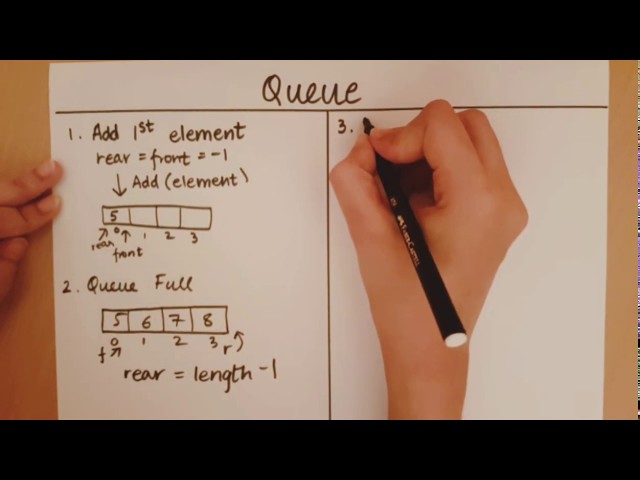 Queue
1. Add 1st element
rear = front = -1
↓ Add (element)
5
0 1 2 3
rear front
2. Queue Full
5 6 7 8
0 1 2 3
f r
rear = length -1
3.